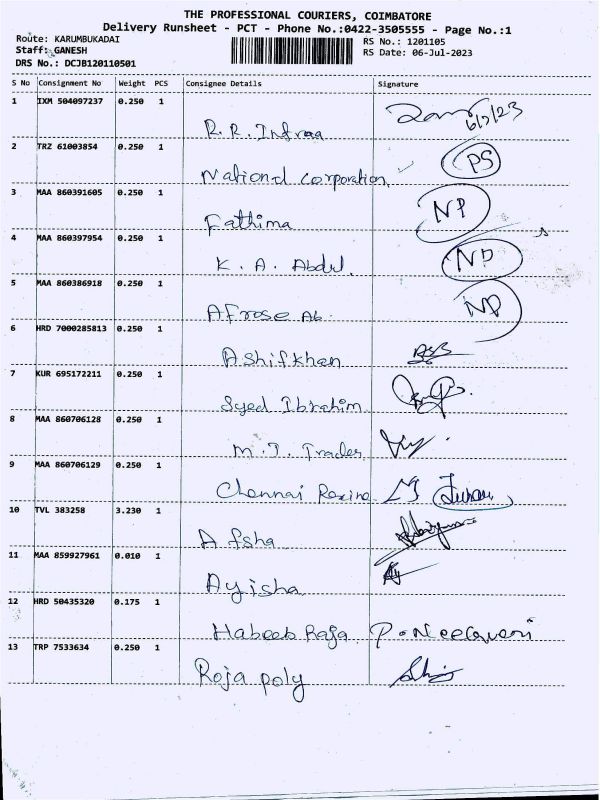 THE PROFESSIONAL COURIERS, COIMBATORE
Delivery Runsheet - PCT - Phone No.:0422-3505555 - Page No.:1
Route: KARUMBUKADAI RS No.: 1201105
Staff: GANESH RS Date: 06-Jul-2023
DRS No.: DCJB120110501
S No Consignment No Weight PCS Consignee Details Signature
1 IXM 504097237 0.250 1
R.R. Infraa 6/7/23
2 TRZ 61003854 0.250 1
National Corporation PS
3 MAA 860391605 0.250 1
Fathima NP
4 MAA 860397954 0.250 1
K. A. Abdul. NP
5 MAA 860386918 0.250 1
Afrose Ab. NP
6 HRD 7000285813 0.250 1
Ashifkhan
7 KUR 695172211 0.250 1
Syed Ibrahim
8 MAA 860706128 0.250 1
M.J. Trades
9 MAA 860706129 0.250 1
Chennai Rexine
10 TVL 383258 3.230 1
Afsha
11 MAA 859927961 0.010 1
Ayisha
12 HRD 50435320 0.175 1
Habeeb Raja
13 TRP 7533634 0.250 1
Roja poly